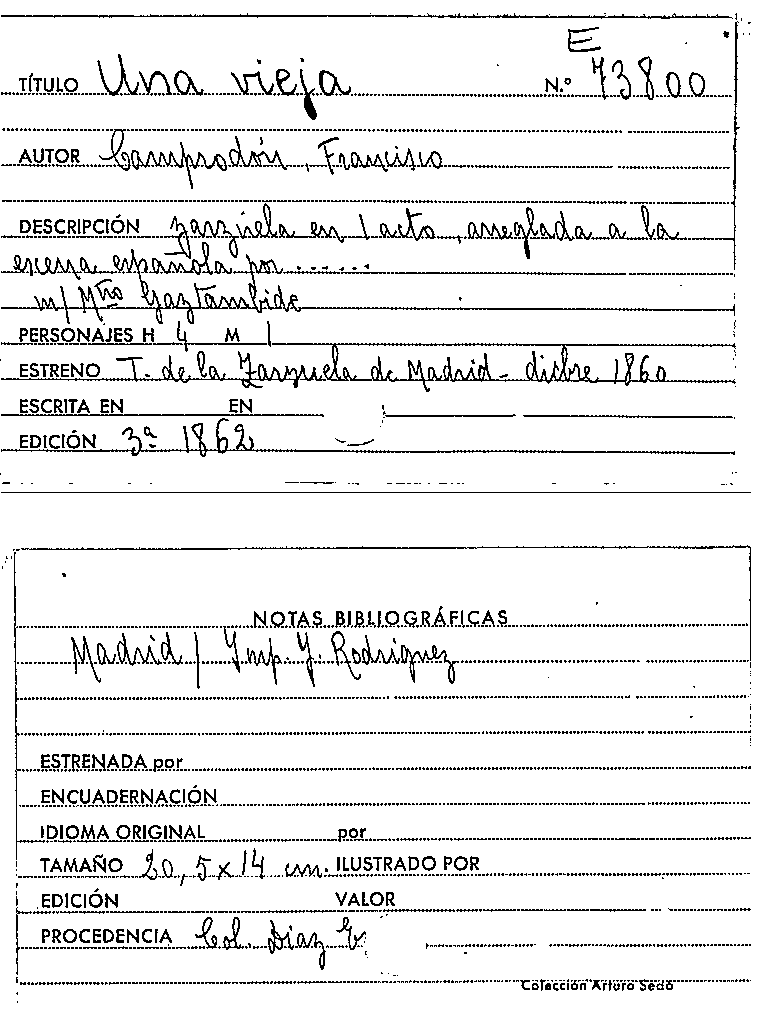 E
TÍTULO Una vieja N.º 73800
AUTOR Camprodón, Francisco
DESCRIPCIÓN zarzuela en 1 acto, arreglada a la
escena española por ......
m/ Mtro Gaztambide
PERSONAJES H 4 M 1
ESTRENO T. de la Zarzuela de Madrid - dicbre 1860
ESCRITA EN EN
EDICIÓN 3ª 1862
NOTAS BIBLIOGRÁFICAS
Madrid / Imp. J. Rodriguez
ESTRENADA por
ENCUADERNACIÓN
IDIOMA ORIGINAL por
TAMAÑO 20,5 x 14 cm. ILUSTRADO POR
EDICIÓN VALOR
PROCEDENCIA Col. Diaz E
Colección Arturo Sedó